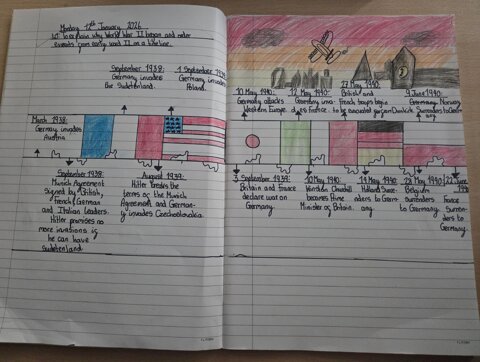 Monday 12th January 2026
LO: to explain why World War II began and order
events from early World II on a timeline.
September 1938:
Germany invades
the Sudetenland
1 September 1939:
Germany invades
Poland.
March 1938:
Germany invades
Austria
September 1938:
Munich Agreement
signed by British,
French, German
and Italian leaders.
Hitler promises no
more invasions if
he can have
Sudetenland
August 1939:
Hitler breaks the
terms of the Munich
Agreement and German-
y invades Czechoslovakia.
10 May 1940:
Germany attacks
Western Europe.
12 May 1940:
Germany inva-
des France.
27 May 1940:
British and
French troops begin
to be evacuated from Dunkirk
9 June 1940:
Norway
Surrenders to Germ-
any
3 September 1939:
Britain and France
declare war on
Germany.
10 May 1940:
Winston Churchill
becomes Prime
Minister of Britain.
15 May 1940:
Holland Surre-
nders to Germ-
any.
28 May 1940:
Belgium
Surrenders
to Germany.
22 June
1940:
France
Surren-
ders to
Germany.